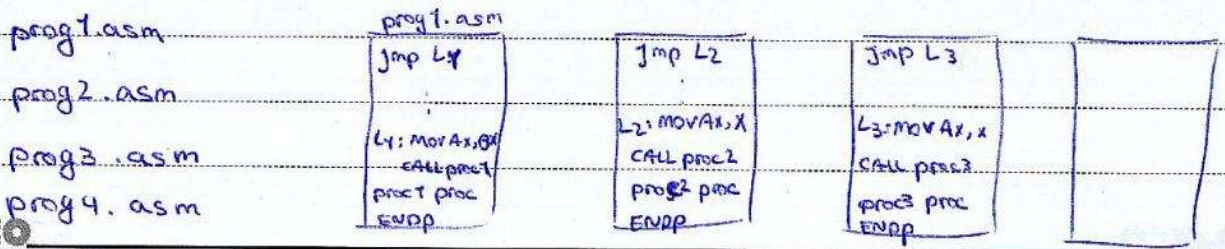 prog1.asm
prog2.asm
prog3.asm
prog4.asm
prog1.asm
jmp L1
L1: MOV AX, BX
CALL proc1
proc1 proc
ENDP
jmp L2
L2: MOV AX, X
CALL proc2
proc2 proc
ENDP
jmp L3
L3: MOV AX, x
CALL proc3
proc3 proc
ENDP